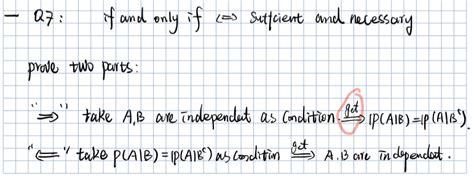 — Q7: if and only if ⇔ sufficient and necessary
prove two parts:
"⇒" take A,B are independent as condition. get ⟹ P(A|B)=P(A|Bᶜ).
"⇐" take P(A|B)=P(A|Bᶜ) as condition get ⟹ A,B are independent.